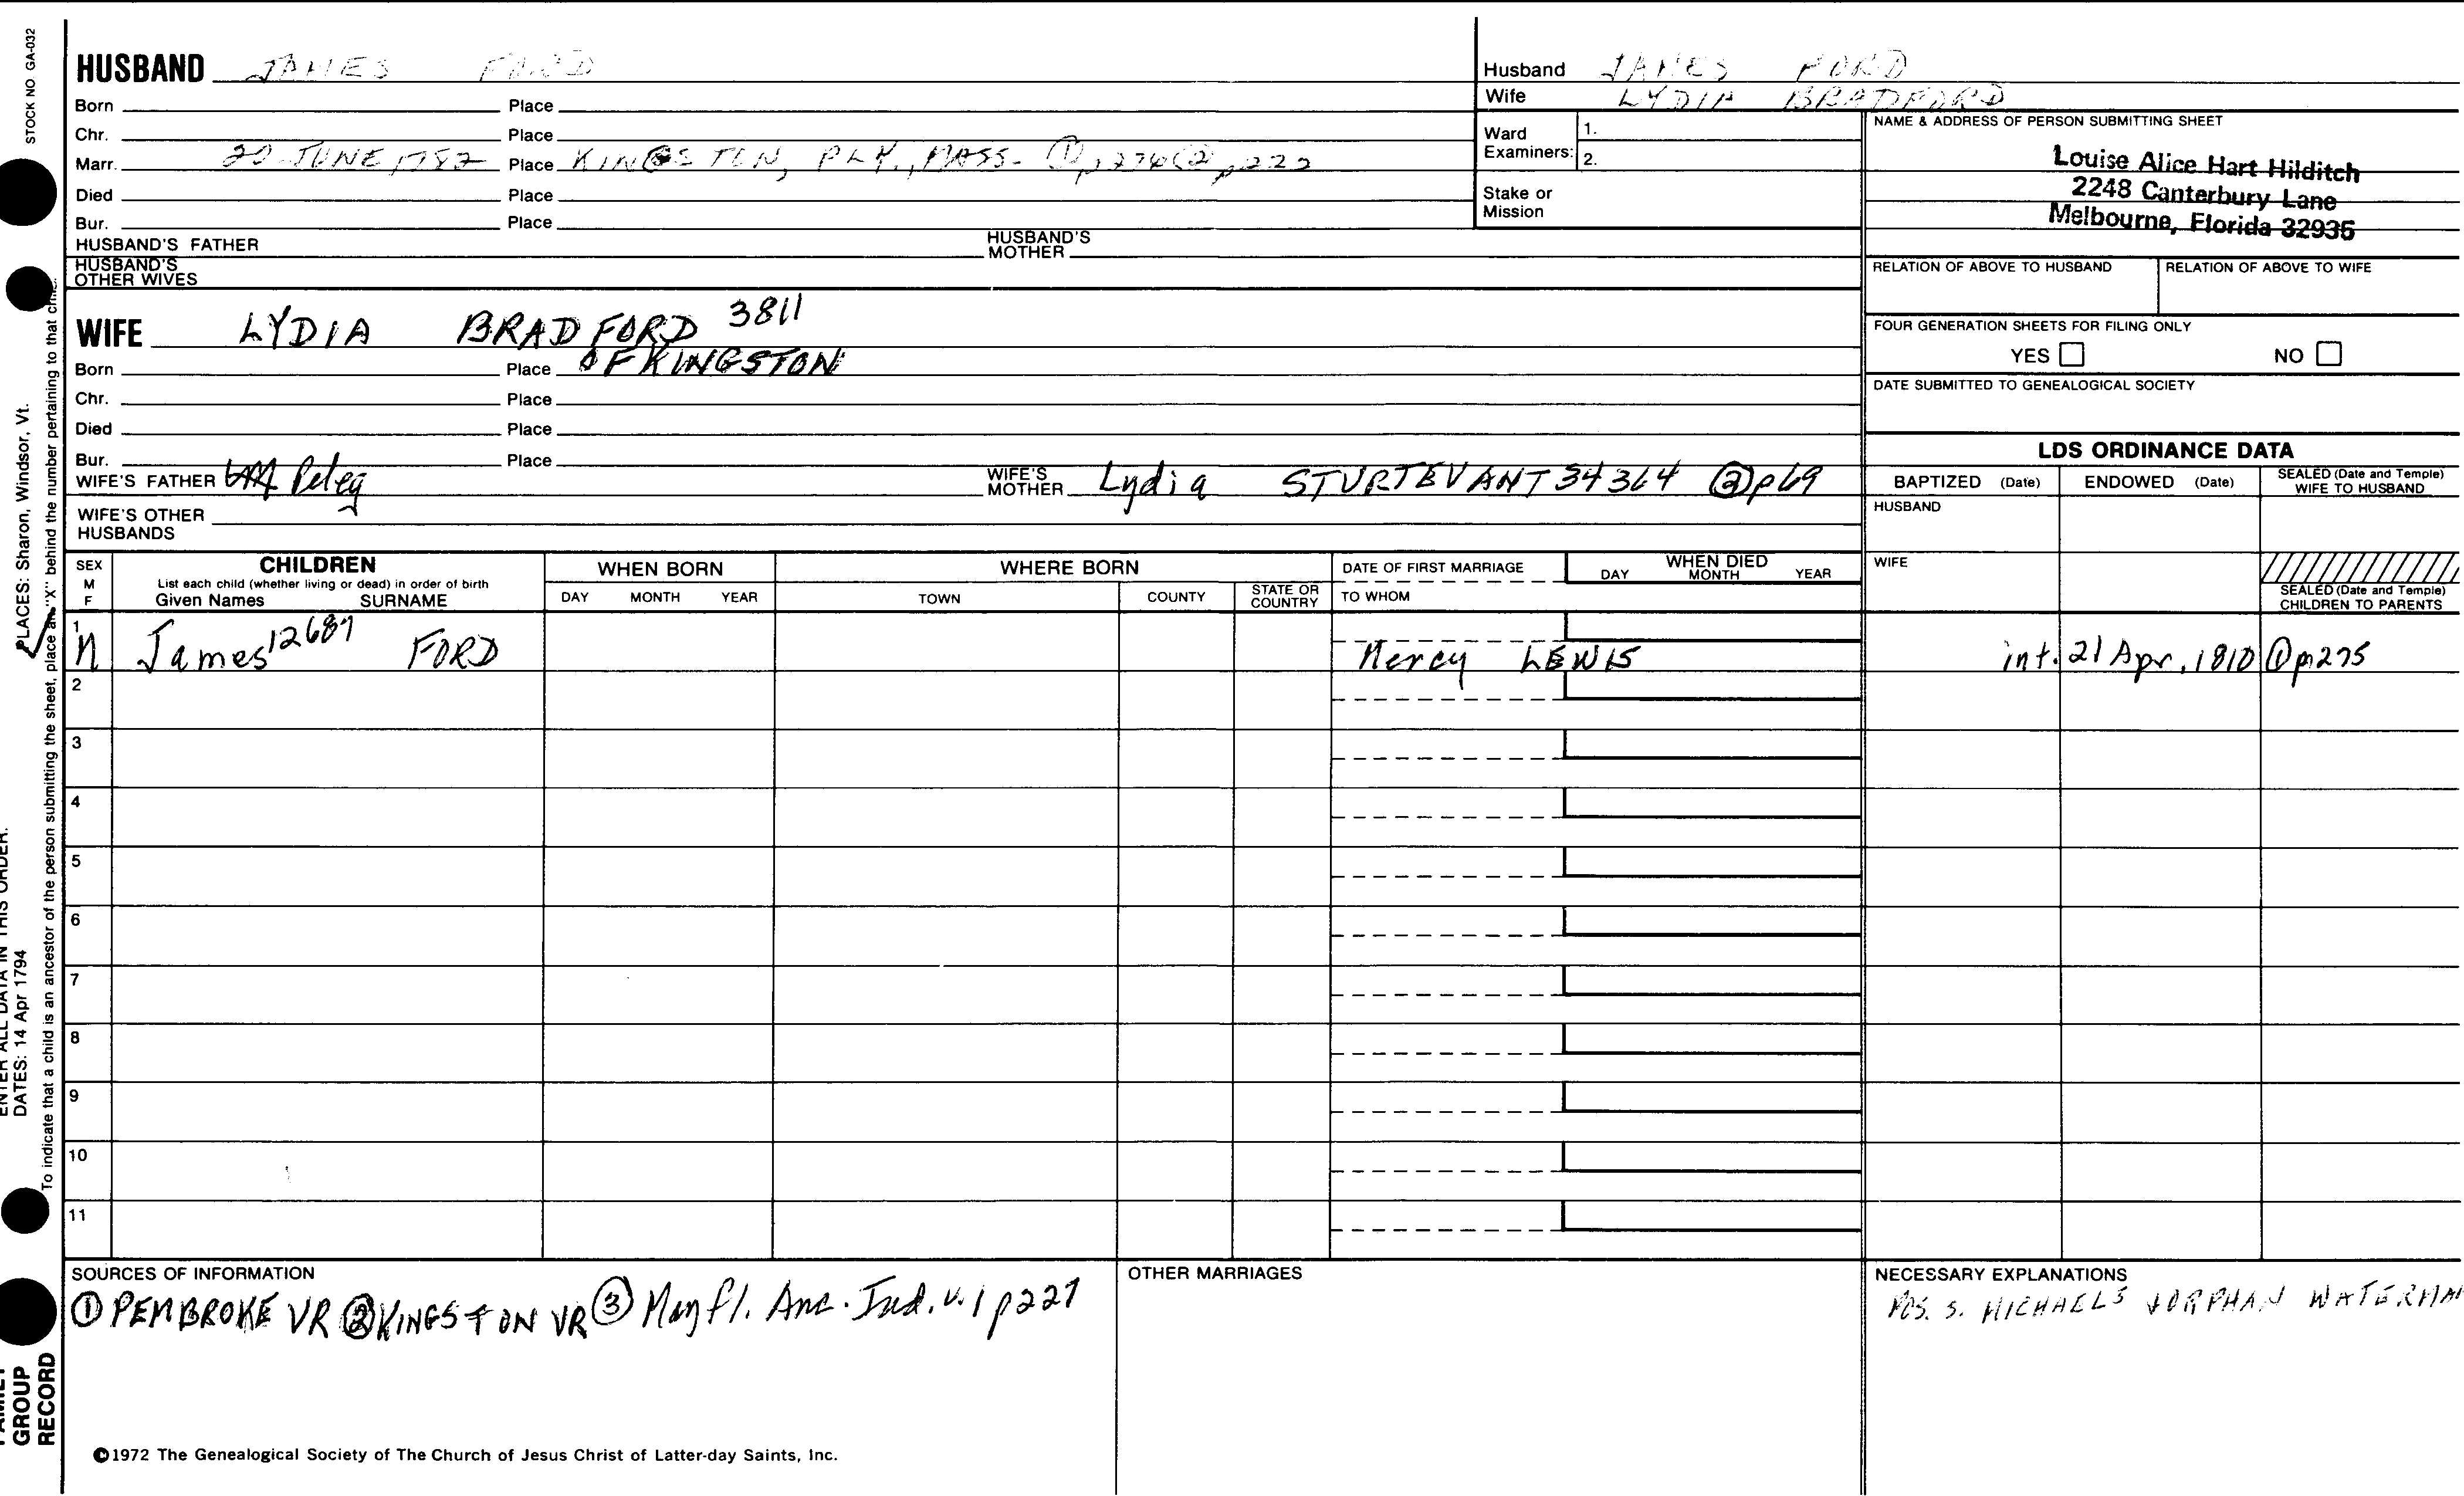 STOCK NO. GA-032
HUSBAND JAMES FORD
Born Place
Chr. Place
Marr. 20 JUNE 1782 Place KINGSTON, PLY., MASS. ① p274 ② p222
Died Place
Bur. Place
HUSBAND'S FATHER HUSBAND'S MOTHER
HUSBAND'S OTHER WIVES
Husband JAMES FORD
Wife LYDIA BRADFORD
Ward Examiners: 1.
2.
Stake or Mission
NAME & ADDRESS OF PERSON SUBMITTING SHEET
Louise Alice Hart Hilditch
2248 Canterbury Lane
Melbourne, Florida 32935
RELATION OF ABOVE TO HUSBAND RELATION OF ABOVE TO WIFE
FOUR GENERATION SHEETS FOR FILING ONLY
YES NO
DATE SUBMITTED TO GENEALOGICAL SOCIETY
WIFE LYDIA BRADFORD 3811
Born Place OF KINGSTON
Chr. Place
Died Place
Bur. Place
WIFE'S FATHER Peleg WIFE'S MOTHER Lydia STURTEVANT 34364 ③ p69
WIFE'S OTHER HUSBANDS
LDS ORDINANCE DATA
BAPTIZED (Date) ENDOWED (Date) SEALED (Date and Temple) WIFE TO HUSBAND
HUSBAND
WIFE
SEALED (Date and Temple) CHILDREN TO PARENTS
SEX M F
CHILDREN
List each child (whether living or dead) in order of birth
Given Names SURNAME
WHEN BORN
DAY MONTH YEAR
WHERE BORN
TOWN COUNTY STATE OR COUNTRY
DATE OF FIRST MARRIAGE
TO WHOM
WHEN DIED
DAY MONTH YEAR
1 M James 12687 FORD Mercy LEWIS int. 21 Apr. 1810 ① p275
2
3
4
5
6
7
8
9
10
11
SOURCES OF INFORMATION
① PEMBROKE VR ② KINGSTON VR ③ Mayfl. Anc. Ind. v. 1 p227
OTHER MARRIAGES
NECESSARY EXPLANATIONS
POS. S. MICHAEL & ORPHAN WATERMAN
©1972 The Genealogical Society of The Church of Jesus Christ of Latter-day Saints, Inc.
PLACES: Sharon, Windsor, Vt.
ENTER ALL DATA IN THIS ORDER:
DATES: 14 Apr 1794
To indicate that a child is an ancestor of the person submitting the sheet, place an "X" behind the number pertaining to that child.
FAMILY
GROUP
RECORD